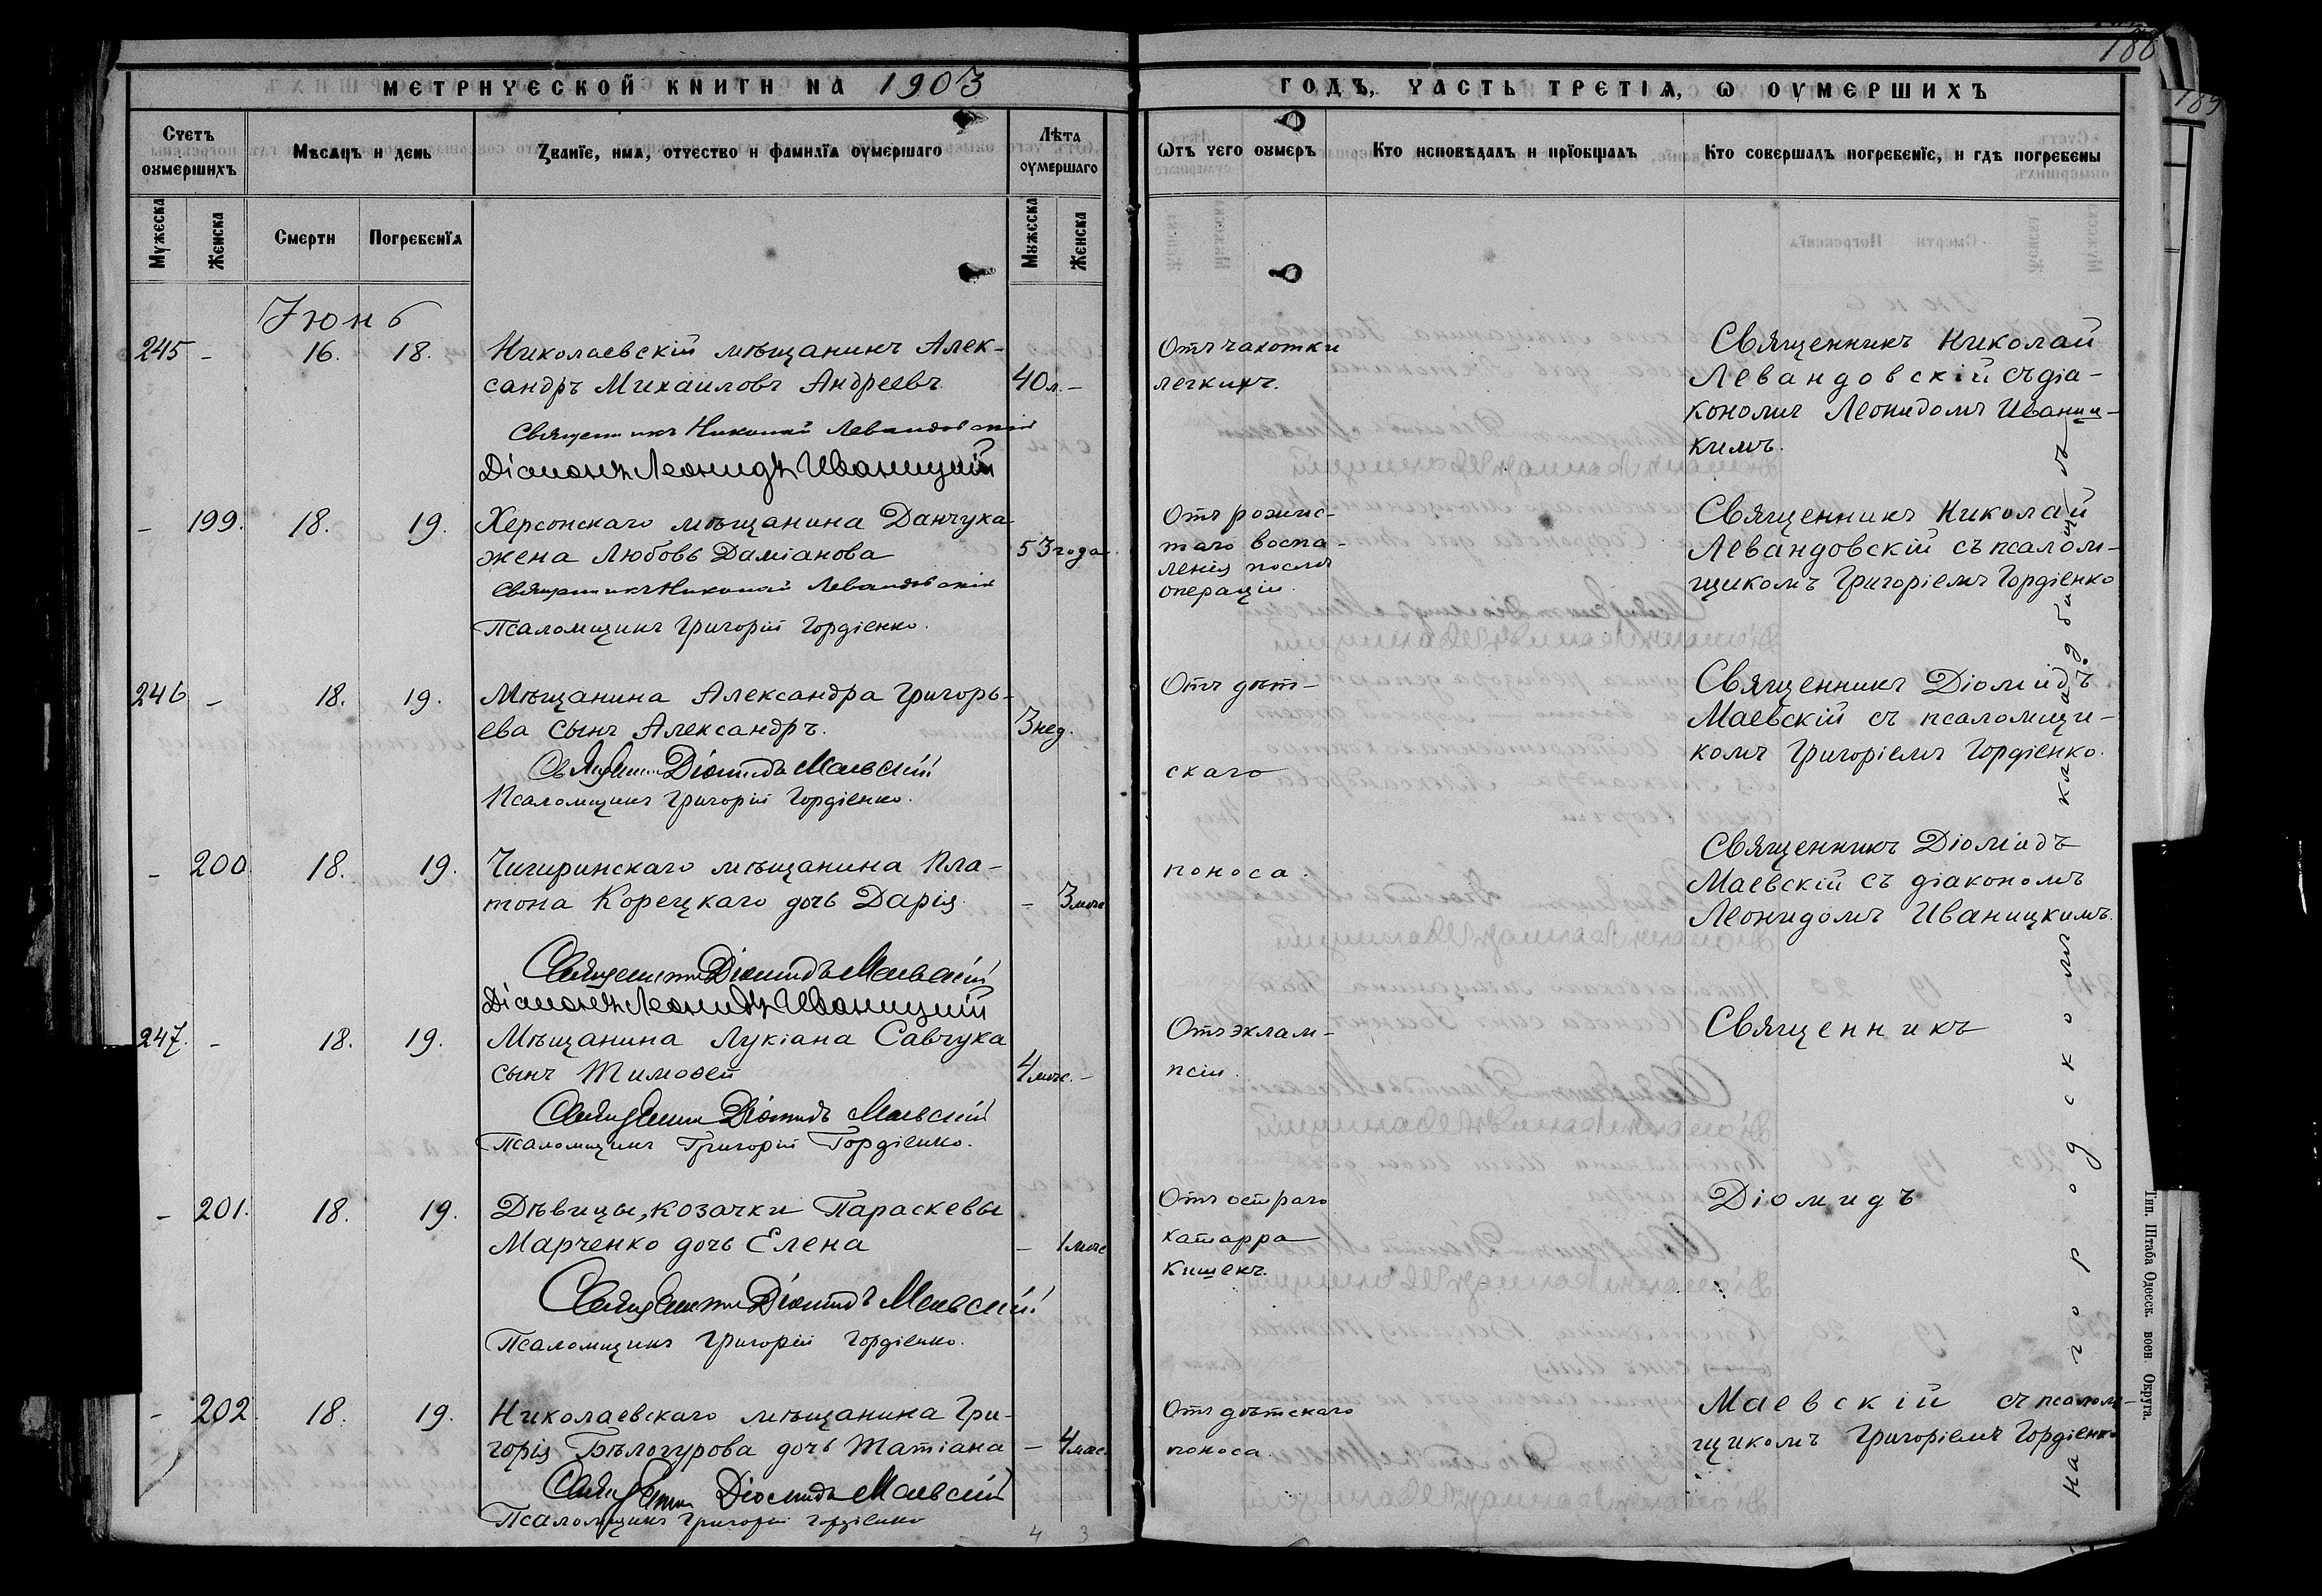 188
189
МЕТРИЧЕСКОЙ КНИГИ НА 1903
ГОДЪ, ЧАСТЬ ТРЕТІѦ, Ѡ ОУМЕРШИХЪ
Счетъ оумершихъ
Мѣсѧцъ и день
Званїе, имѧ, отчество и фамилїѧ оумершаго
Лѣта оумершаго
Ѿтъ чего оумеръ
Кто исповѣдалъ и прїобщалъ
Кто совершалъ погребенїе, и гдѣ погребены
Мужеска
Женска
Смерти
Погребенїѧ
Мужеска
Женска
Іюнь
245 - 16. 18. Николаевскій мѣщанинъ Алек-
сандръ Михаиловъ Андреевъ 40 л. -
Священникъ Николай Левандовскій
Діаконъ Леонидъ Иваницкій
Отъ чахотки
легкихъ.
Священникъ Николай
Левандовскій съ діа-
кономъ Леонидомъ Иваниц-
кимъ.
- 199. 18. 19. Херсонскаго мѣщанина Данчука
жена Любовь Даміанова 53 года
Священникъ Николай Левандовскій
Псаломщикъ Григорій Гордіенко.
Отъ рожис-
таго воспа-
ленія послѣ
операціи.
Священникъ Николай
Левандовскій съ псалом-
щикомъ Григоріемъ Гордіенко
246 - 18. 19. Мѣщанина Александра Григорь-
ева сынъ Александръ. 3 нед.
Священникъ Діомидъ Маевскій
Псаломщикъ Григорій Гордіенко.
Отъ дѣт-
скаго
Священникъ Діомидъ
Маевскій съ псаломщи-
комъ Григоріемъ Гордіенко.
- 200 18. 19. Чигиринскаго мѣщанина Пла-
тона Корецкаго дочь Дарія - 3 мѣс
Священникъ Діомидъ Маевскій
Діаконъ Леонидъ Иваницкій
поноса.
Священникъ Діомидъ
Маевскій съ діакономъ
Леонидомъ Иваницкимъ.
247. - 18. 19. Мѣщанина Лукіана Савчука
сынъ Тимоѳей 4 мѣс. -
Священникъ Діомидъ Маевскій
Псаломщикъ Григорій Гордіенко.
Отъ эклам-
псіи.
Священникъ
- 201. 18. 19. Дѣвицы, козачки Параскевы
Марченко дочь Елена - 1 мѣс
Священникъ Діомидъ Маевскій
Псаломщикъ Григорій Гордіенко.
Отъ остраго
катарра
кишекъ.
Діомидъ
- 202. 18. 19. Николаевскаго мѣщанина Гри-
горія Бѣлогурова дочь Татіана - 4 мѣс.
Священникъ Діомидъ Маевскій
Псаломщикъ Григорій Гордіенко
Отъ дѣтскаго
поноса.
Маевскій съ псалом-
щикомъ Григоріемъ Гордіенко
На городскомъ кладбищѣ
4 3
Тип. Штаба Одесск. воен. Округа.